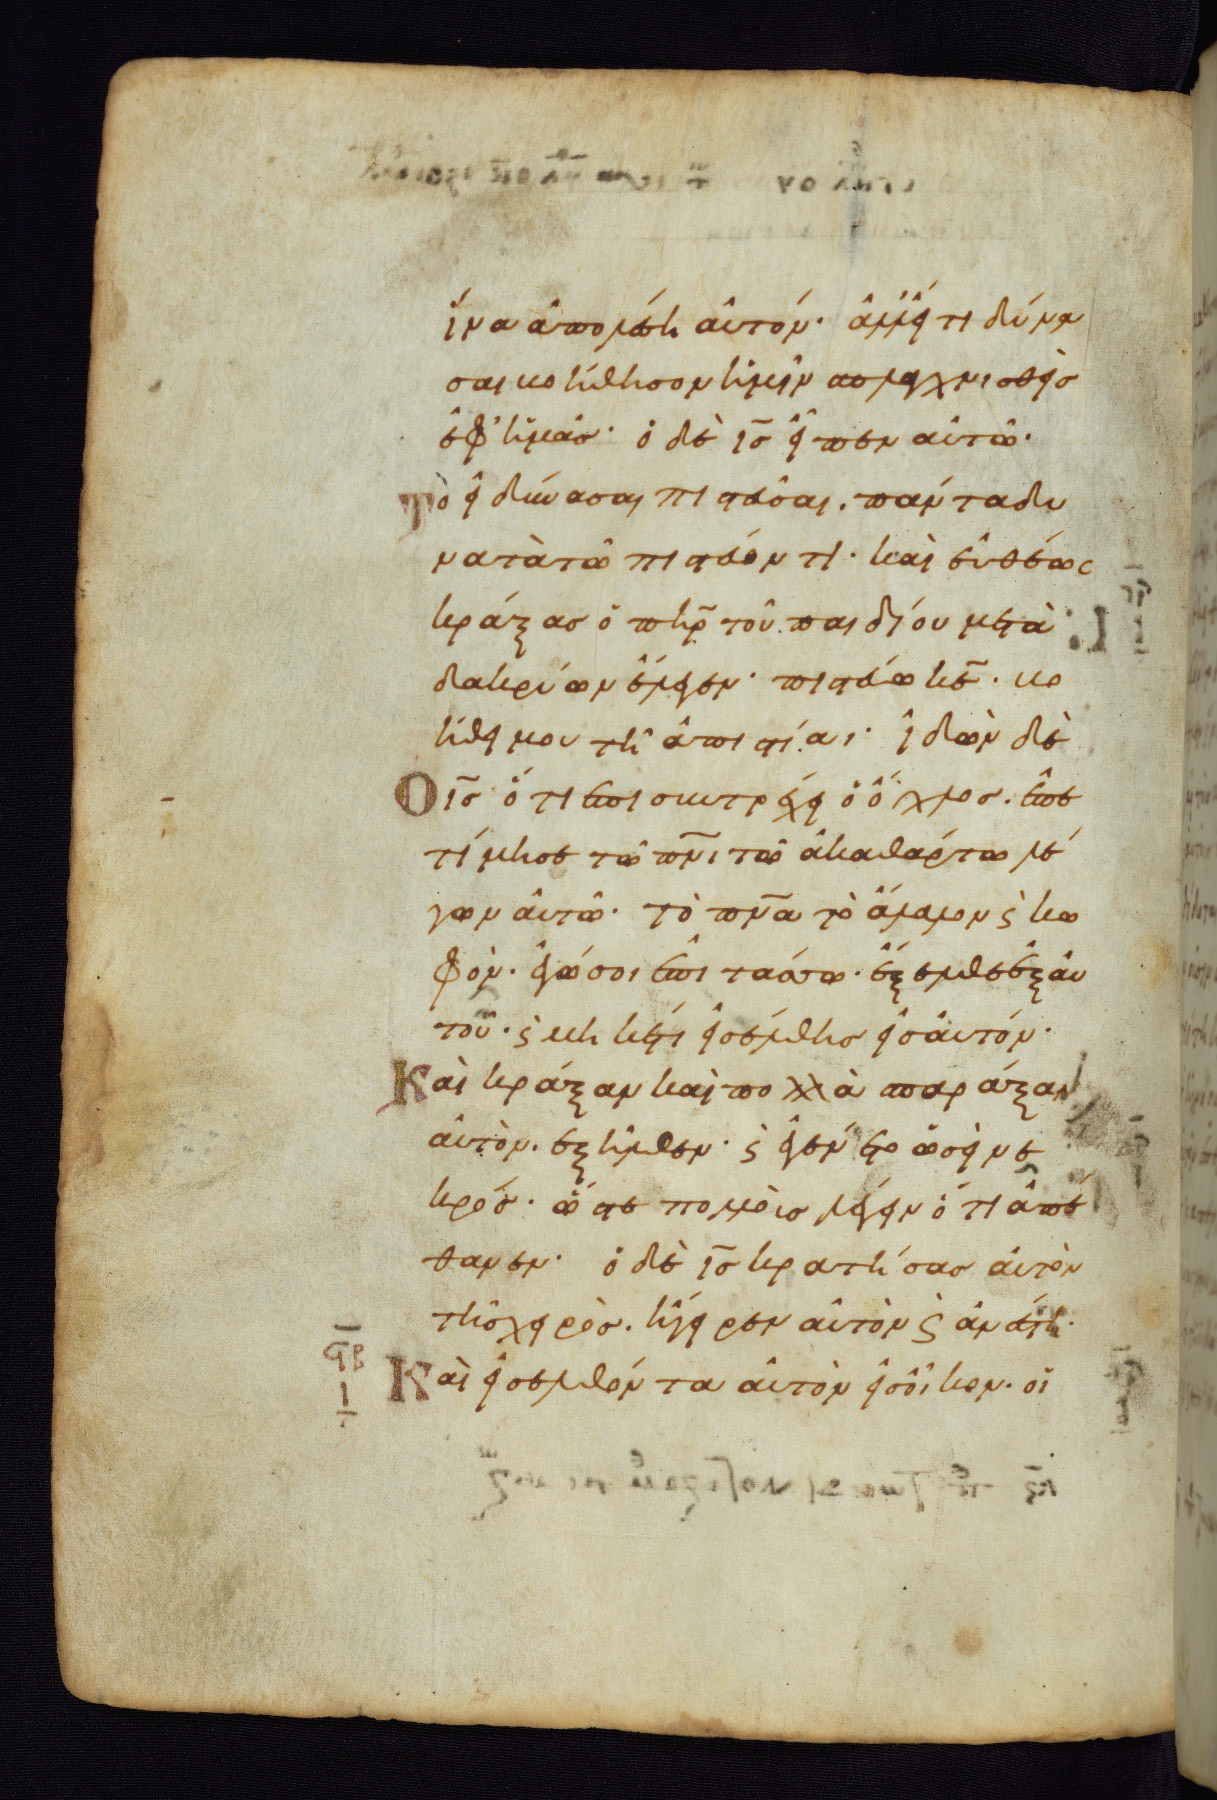 ἵνα ἀπολέση αὐτόν· ἀλλεί τι δύνα
σαι βοήθησον ἡμῖν σπλαγχνισθεὶσ
ἐφ' ἡμᾶσ· ὁ δὲ ι̅σ̅ εἶπεν αὐτῶ·
Τὸ εἰ δύνασαι πιστεῦσαι. πάντα δυ
νατὰ τῶ πιστεύοντι· καὶ εὐθέως
κράξασ ὁ π̅η̅ρ̅ τοῦ παιδίου μετὰ
δακρύων ἔλεγεν· πιστεύω κ̅ε̅. βο
ήθει μου τῆ ἀπιστίαι· ἰδὼν δὲ
Ο ι̅σ̅ ὅτι ἐπισυντρέχει ὁ ὄχλοσ. ἐπε
τίμησε τῶ π̅ν̅ι̅ τῶ ἀκαθάρτω λέ
γων αὐτῶ· τὸ π̅ν̅α̅ τὸ ἄλαλον ϛ κω
φὸν. ἐγώ σοι ἐπιτάσσω. ἔξελθε ἐξ αὐ
τοῦ· ϛ μηκέτι εἰσέλθησ εἰσ αὐτόν·
Καὶ κράξαν καὶ πολλὰ σπαράξαν
αὐτὸν. ἐξῆλθεν· ϛ ἐγένετο ὡσεὶ νε
κρόσ· ὥστε πολλοὺσ λέγειν ὅτι ἀπέ
θανεν· ὁ δὲ ι̅σ̅ κρατήσασ αὐτὸν
τῆσ χειρὸσ. ἤγειρεν αὐτὸν ϛ ἀνέστη·
Καὶ εἰσελθόντα αὐτὸν εἰσ οἶκον. οἱ
ϙ̅β̅
ι̅